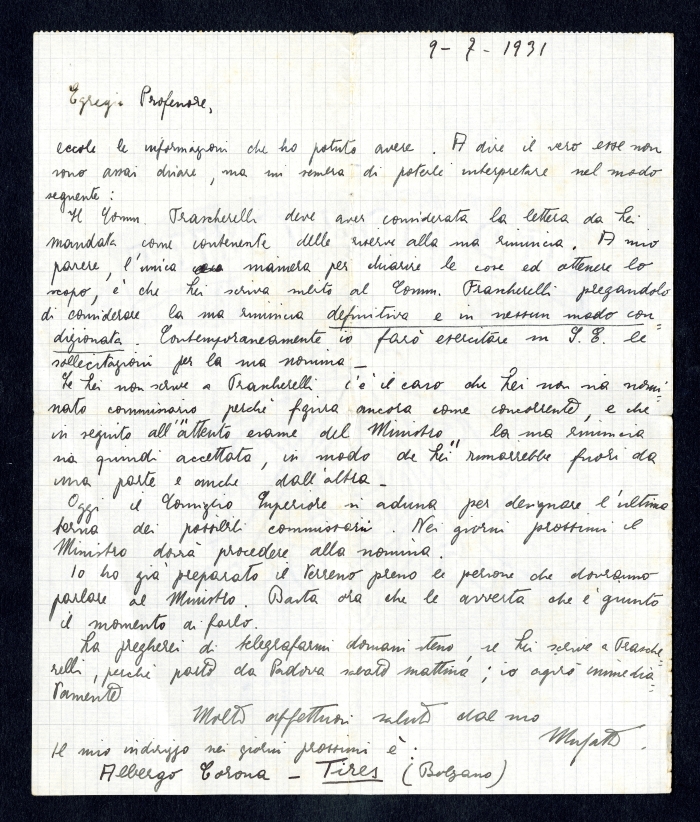 9 - 7 - 1931
Egregio Professore,
eccole le informazioni che ho potuto avere. A dire il vero esse non
sono assai chiare, ma mi sembra di poterle interpretare nel modo
seguente:
Il Comm. Frascherelli deve aver considerata la lettera da Lei
mandata come contenente delle riserve alla sua rinuncia. A mio
parere, l'unica maniera per chiarire le cose ed ottenere lo
scopo, è che Lei scriva subito al Comm. Frascherelli pregandolo
di considerare la sua rinuncia definitiva e in nessun modo con=
dizionata. Contemporaneamente io farò esercitare su S. E. le
sollecitazioni per la sua nomina —
Se Lei non scrive a Frascherelli c'è il caso che Lei non sia nomi=
nato commissario perchè figura ancora come concorrente, e che
in seguito all'"attento esame del Ministro" la sua rinuncia
sia quindi accettata, in modo che Lei rimarrebbe fuori da
una parte e anche dall'altra —
Oggi il Consiglio Superiore si aduna per designare l'ultima
terna dei possibili commissari. Nei giorni prossimi il
Ministro dovrà procedere alla nomina.
Io ho già preparato il terreno presso le persone che dovranno
parlare al Ministro. Basta ora che le avverta che è giunto
il momento di farlo.
La pregherei di telegrafarmi domani stesso, se Lei scrive a Frasche=
relli, perchè parto da Padova sabato mattina; io agirò immedia=
tamente
Molti affettuosi saluti dal suo
Musatti.
Il mio indirizzo nei giorni prossimi è:
Albergo Corona — Tires (Bolzano)